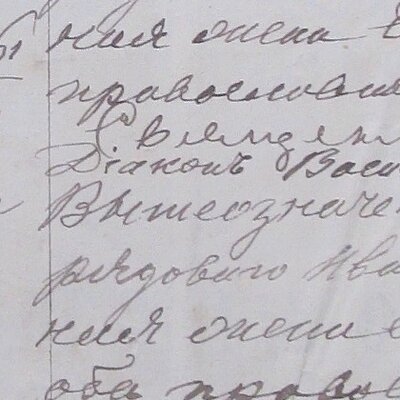 ная жена
православн
Священ
Діаконъ Васи
Вышеозначе
рядоваго Ива
ная жена
оба право